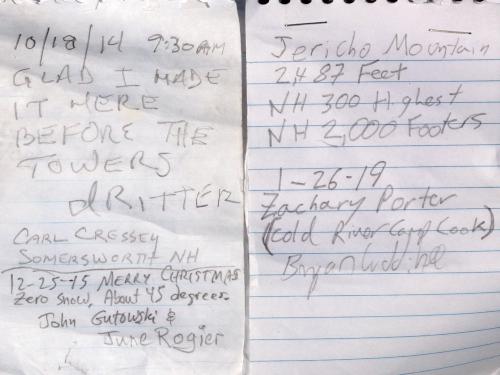 10/18/14 9:30AM
GLAD I MADE
IT HERE
BEFORE THE
TOWERS
dRITTER
CARL CRESSEY
SOMERSWORTH NH
12-25-15 MERRY CHRISTMAS
Zero snow, About 45 degrees
John Gutowski &
June Rogier
Jericho Mountain
2487 Feet
NH 300 Highest
NH 2,000 Footers
1-26-19
Zachary Porter
(Cold River Camp Cook)
Bryan